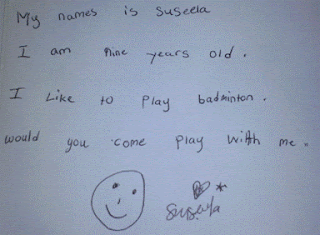 My names is suseela
I am nine years old.
I Like to play badminton.
would you come play with me.
suseela